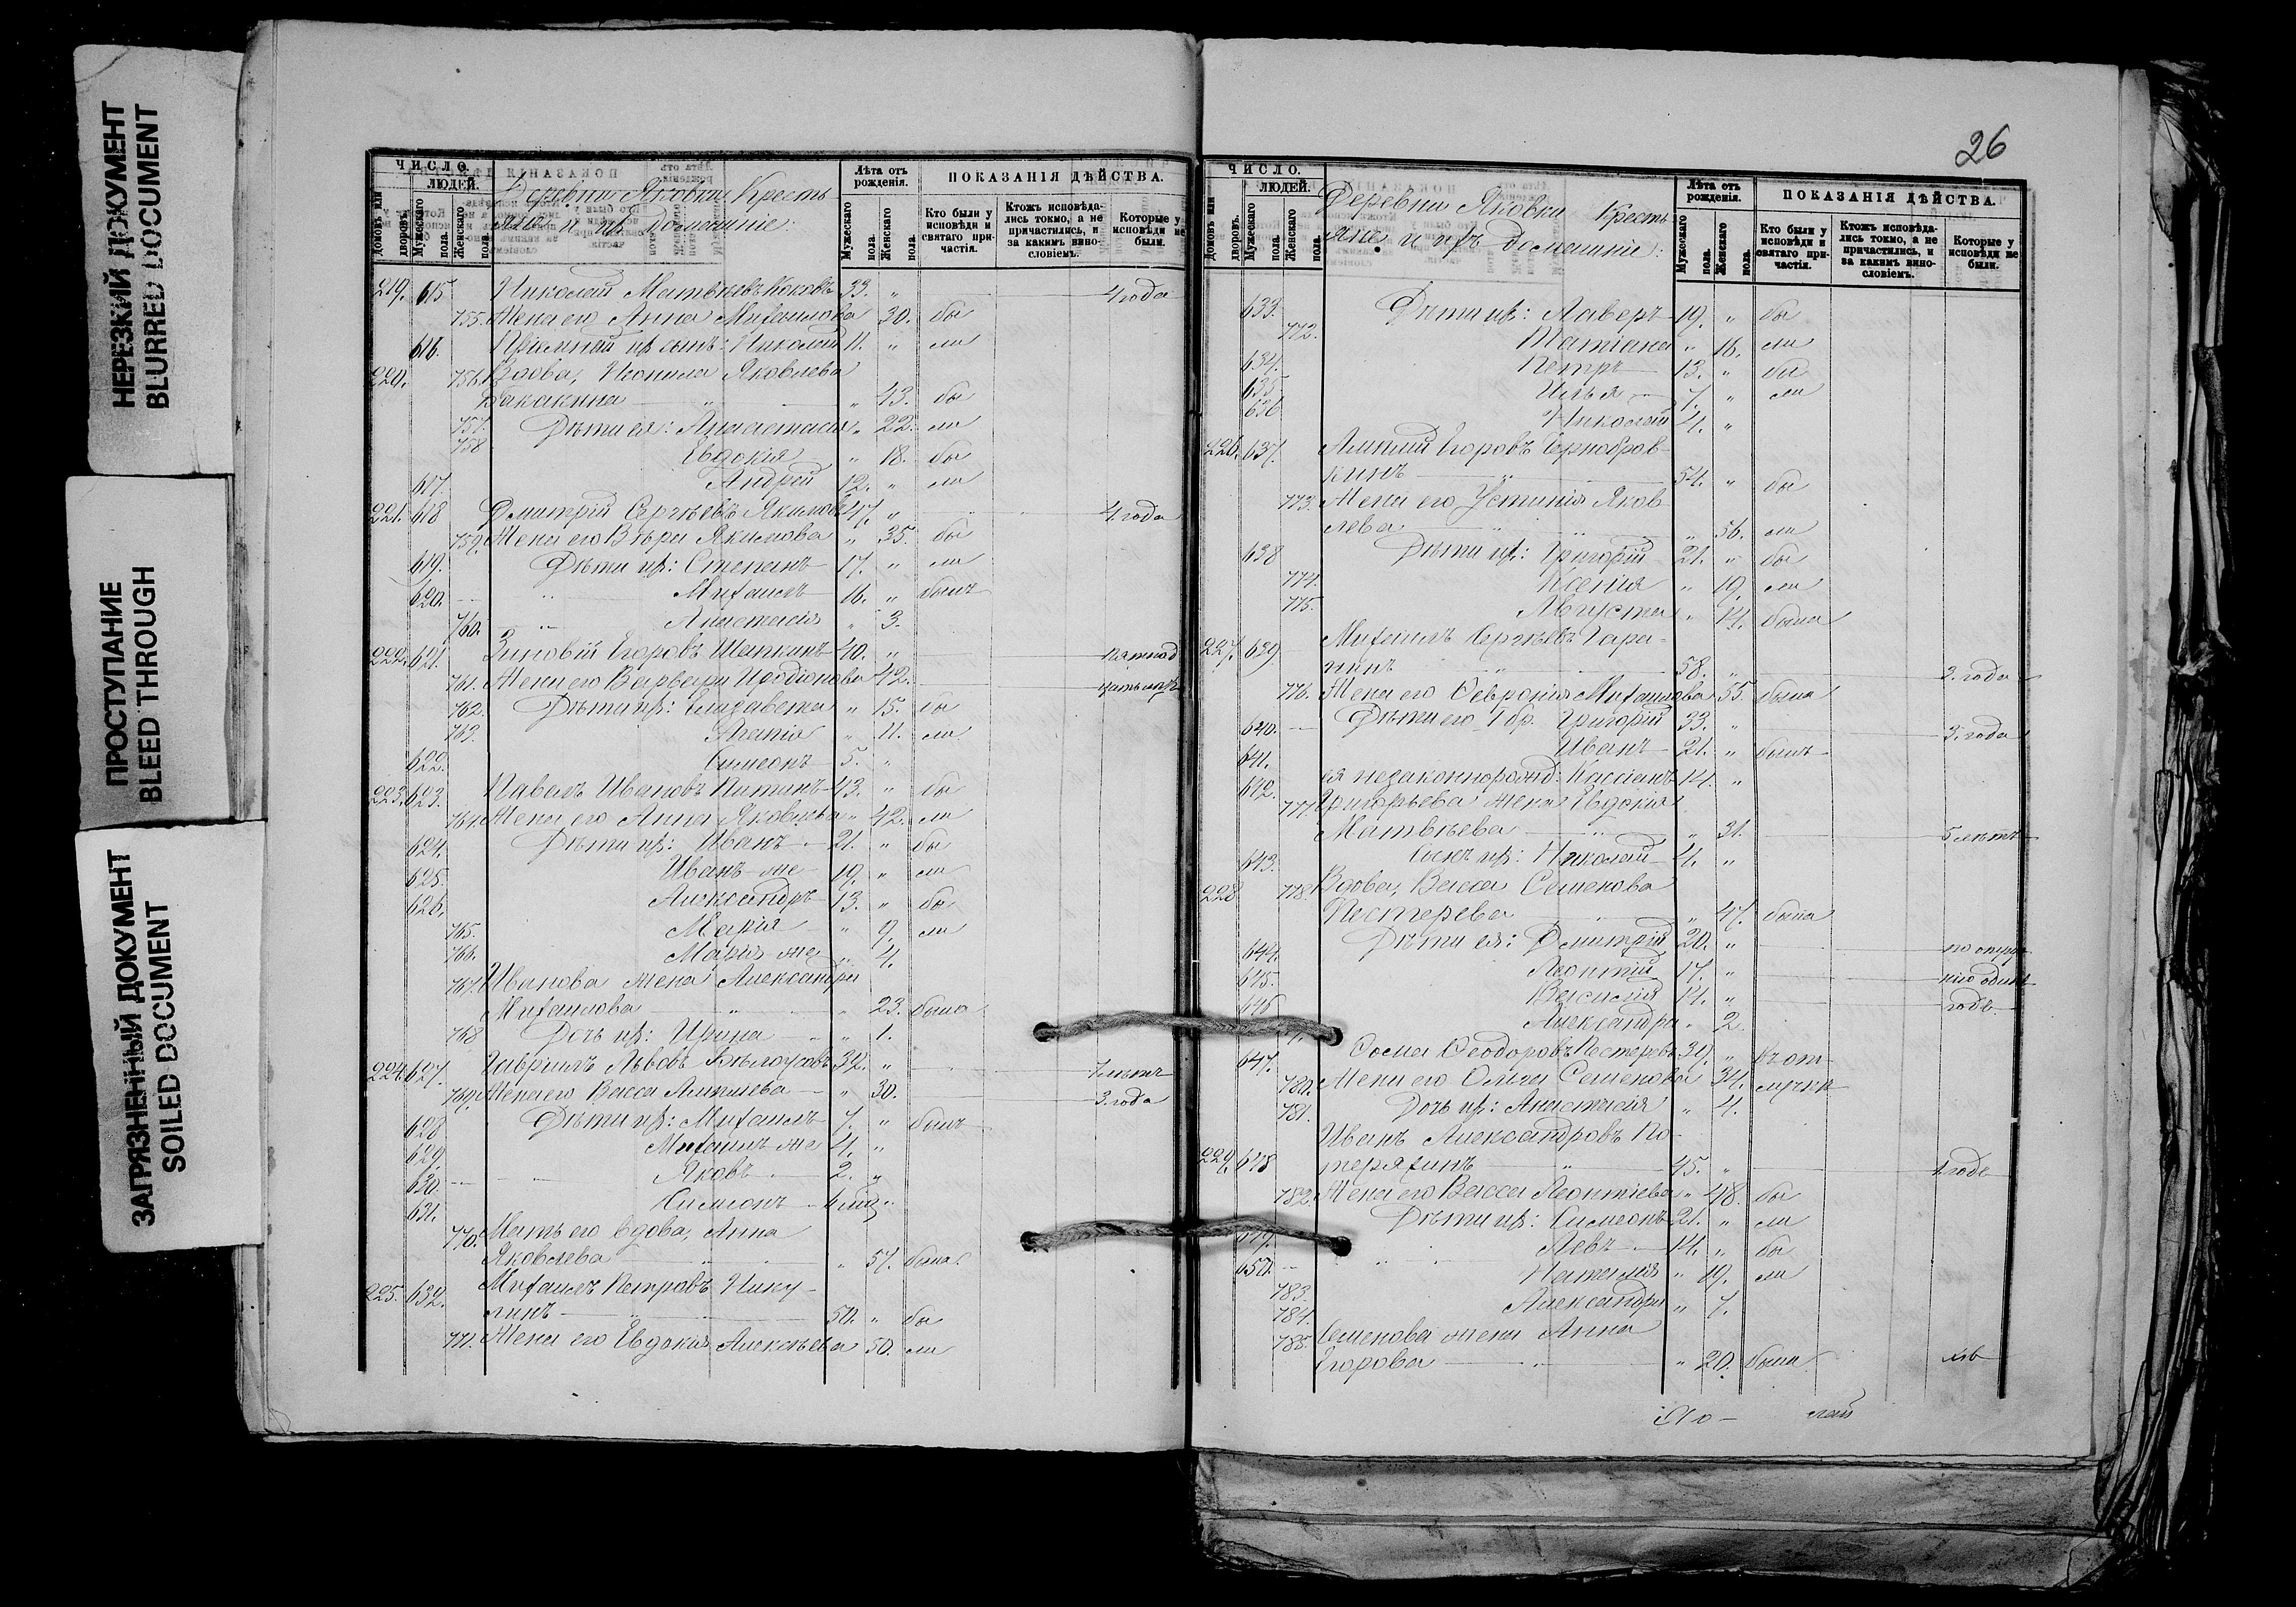 НЕРЕЗКИЙ ДОКУМЕНТ
BLURRED DOCUMENT
ПРОСТУПАНИЕ
BLEED THROUGH
ЗАГРЯЗНЕННЫЙ ДОКУМЕНТ
SOILED DOCUMENT
ЧИСЛО.
ЛЮДЕЙ.
Домовъ или дворовъ.
Мужескаго пола.
Женскаго пола.
Деревни Яковки Кресть
яне и ихъ домашніе:
Лѣта отъ рожденія.
Мужескаго пола.
Женскаго пола.
ПОКАЗАНІЯ ДѢЙСТВА.
Кто были у исповѣди и святаго причастія.
Ктожъ исповѣдались токмо, а не причастились, и за какимъ винословіемъ.
Которые у исповѣди не были.
219. 615 Николай Матвѣевъ 33. " 4 года
755. Жена его Анна Михаилова 30. бы
616. Пріемный ихъ сынъ: Николай 11. " ли
220. 756. Вдова, Неонила Яковлева
Бакакина " " 43. бы
757. Дѣти ея: Анастасія " 22. ли
758 Евдокія " 18. бы
617. Андрей 12. " ли
221. 618 Дмитрій Сергѣевъ Якимовъ 47. " 4. года
759. Жена его Вѣра Якимова " 35. бы
619. Дѣти ихъ: Степанъ 17. " ли
620. " Михаилъ 16. " былъ
760. " Анастасія " 3.
222. 621. Зиновій Егоровъ 40. "
761. Жена его Варвара Иродіонова 42.
762. Дѣти ихъ: Елизавета " 15. бы
763. Агапія " 11. ли
622. Симеонъ 5. "
223. 623. Павелъ Ивановъ 43. " бы
764. Жена его Анна Яковлева " 42. ли
624. Дѣти ихъ: Иванъ 21. " бы
625. Иванъ же 19. " ли
626. Александръ 13. " бы
765. Марія " 9. ли
766. Марія же " 4.
767. Иванова жена Александра
Михаилова " " 23. была
768 Дочь ихъ: Ирина " 1.
224. 627. Гавріилъ Львовъ Бѣлоусовъ 32. " 7 лѣтъ
769. Жена его Васса " 30. 3. года
628 Дѣти ихъ: Михаилъ 7. " былъ
629. Михаилъ же 4. "
630. " Яковъ 2. "
631. Симеонъ "
770. Мать его вдова, Анна
Яковлева " " 57. была.
225. 632. Михаилъ Петровъ Нику-
линъ " 50. " бы
771. Жена его Евдокія Алексѣева 50. ли
26
ЧИСЛО.
ЛЮДЕЙ.
Домовъ или дворовъ.
Мужескаго пола.
Женскаго пола.
Деревни Яковки Кресть
яне и ихъ домашніе:
Лѣта отъ рожденія.
Мужескаго пола.
Женскаго пола.
ПОКАЗАНІЯ ДѢЙСТВА.
Кто были у исповѣди и святаго причастія.
Ктожъ исповѣдались токмо, а не причастились, и за какимъ винословіемъ.
Которые у исповѣди не были.
633. Дѣти ихъ: Лаверъ 19. " бы
772. Татіана " 16. ли
634. Петръ 13. " бы
635 Илья 7. " ли
636 Николай 4. "
226. 637. Егоровъ Чернобров-
кинъ " 54. " бы
773. Жена его Устинія Яков
лева " " 56. ли
638 Дѣти ихъ: Григорій 21. " бы
774. Ксенія " 19. ли
775. Августа " 14. была
227. 639 Михаилъ Сергѣевъ
" 58. " 2. года
776. Жена его Февронія Михаилова 55. была
640. Дѣти его 1 бр. Григорій 33. " 3. года
641. Иванъ 21. " былъ
642. ея незаконнорожд: Кассіанъ 14. "
777. Григорьева жена Евдокія
Матвѣева " " 31. 5 лѣтъ
643. Сынъ ихъ: Николай 4. "
228 778. Вдова, Васса Семенова
Пестерева " " 47. была
644. Дѣти ея: Дмитрій 20. "
645. Леонтій 17. "
646 Василій 14. " годъ
Александра " 2
647. Косма Феодоровъ Пестеревъ 39. " въ от-
780. Жена его Ольга Семенова 34. лучкѣ
781. Дочь ихъ: Анастасія " 4.
Иванъ Александровъ По-
229. 648 теряхинъ " 45. " 1 годъ
782. Жена его Васса Леонтіева " 48. бы
Дѣти ихъ: Симеонъ 21. " ли
649. Левъ 14. " бы
650. " Наталія " 19. ли
783. Александра " 7.
784.
785. Семенова жена Анна
Егорова " " 20. была